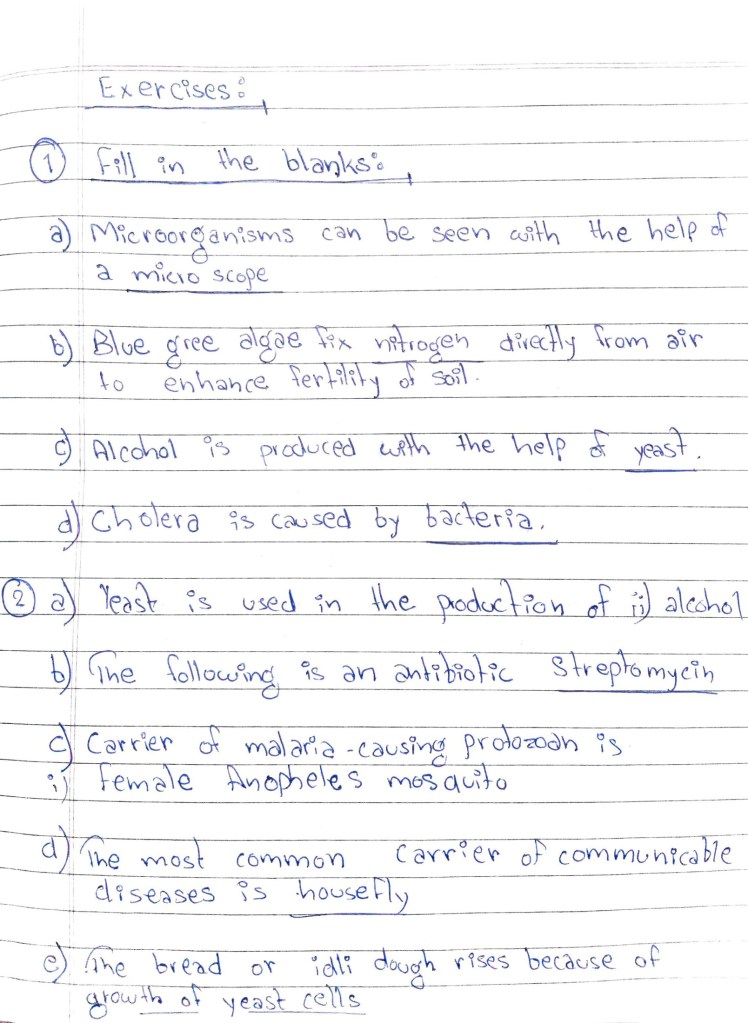 Exercises:
1 Fill in the blanks:
a) Microorganisms can be seen with the help of
a micro scope
b) Blue gree algae fix nitrogen directly from air
to enhance fertility of soil.
c) Alcohol is produced with the help of yeast.
d) Cholera is caused by bacteria.
2 a) Yeast is used in the production of ii) alcohol
b) The following is an antibiotic Streptomycin
c) Carrier of malaria-causing protozoan is
i) female Anopheles mosquito
d) The most common carrier of communicable
diseases is housefly
e) The bread or idli dough rises because of
growth of yeast cells